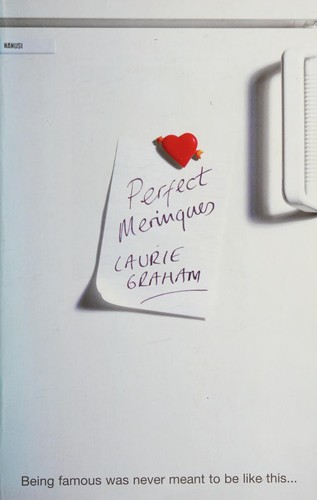 NANUSI
Perfect
Meringues
LAURIE
GRAHAM
Being famous was never meant to be like this...